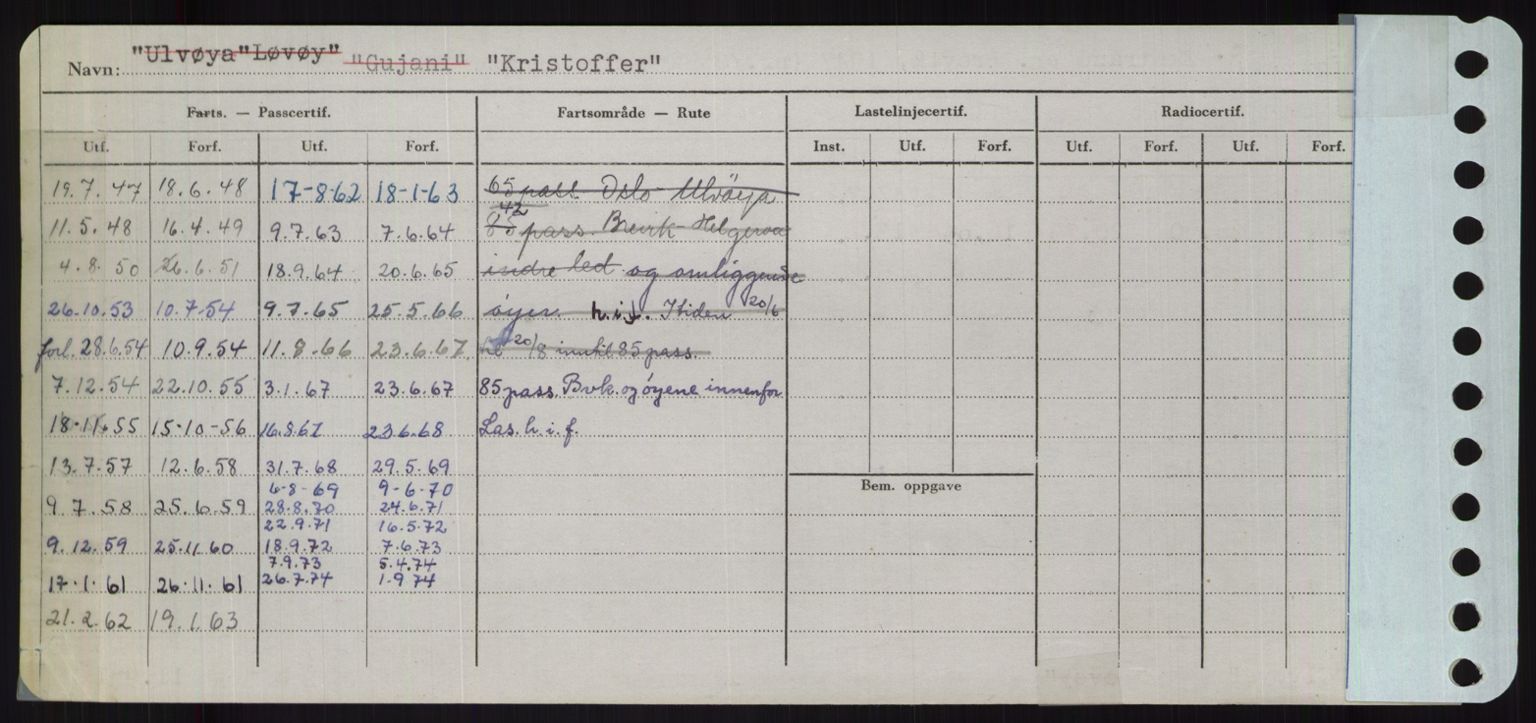 Navn: "Ulvøya" "Løvøy" "Gujani" "Kristoffer"
Farts. — Passcertif. Fartsområde — Rute Lastelinjecertif. Radiocertif.
Utf. Forf. Utf. Forf. Inst. Utf. Forf. Utf. Forf. Utf. Forf.
19.7.47 18.6.48 17-8-62 18-1-63 65 pass Oslo Ulvöya
42
11.5.48 16.4.49 9.7.63 7.6.64 85 pass. Brevik-Helgeroa
4.8.50 26.6.51 18.9.64 20.6.65 indre led og omliggende
26.10.53 10.7.54 9.7.65 25.5.66 öyer. h.i.f. I tiden 20/6
forl. 28.6.54 10.9.54 11.8.66 23.6.67 til 20/8 inntil 85 pass.
7.12.54 22.10.55 3.1.67 23.6.67 85 pass. Bvk. og öyene innenfor
18.11.55 15-10-56 16.8.67 23.6.68 Las. h.i.f.
13.7.57 12.6.58 31.7.68 29.5.69
6-8-69 9-6-70
Bem. oppgave
9.7.58 25.6.59 28.8.70 24.6.71
22.9.71 16.5.72
9.12.59 25.11.60 18.9.72 7.6.73
7.9.73 5.4.74
17.1.61 26.11.61 26.7.74 1.9.74
21.2.62 19.1.63